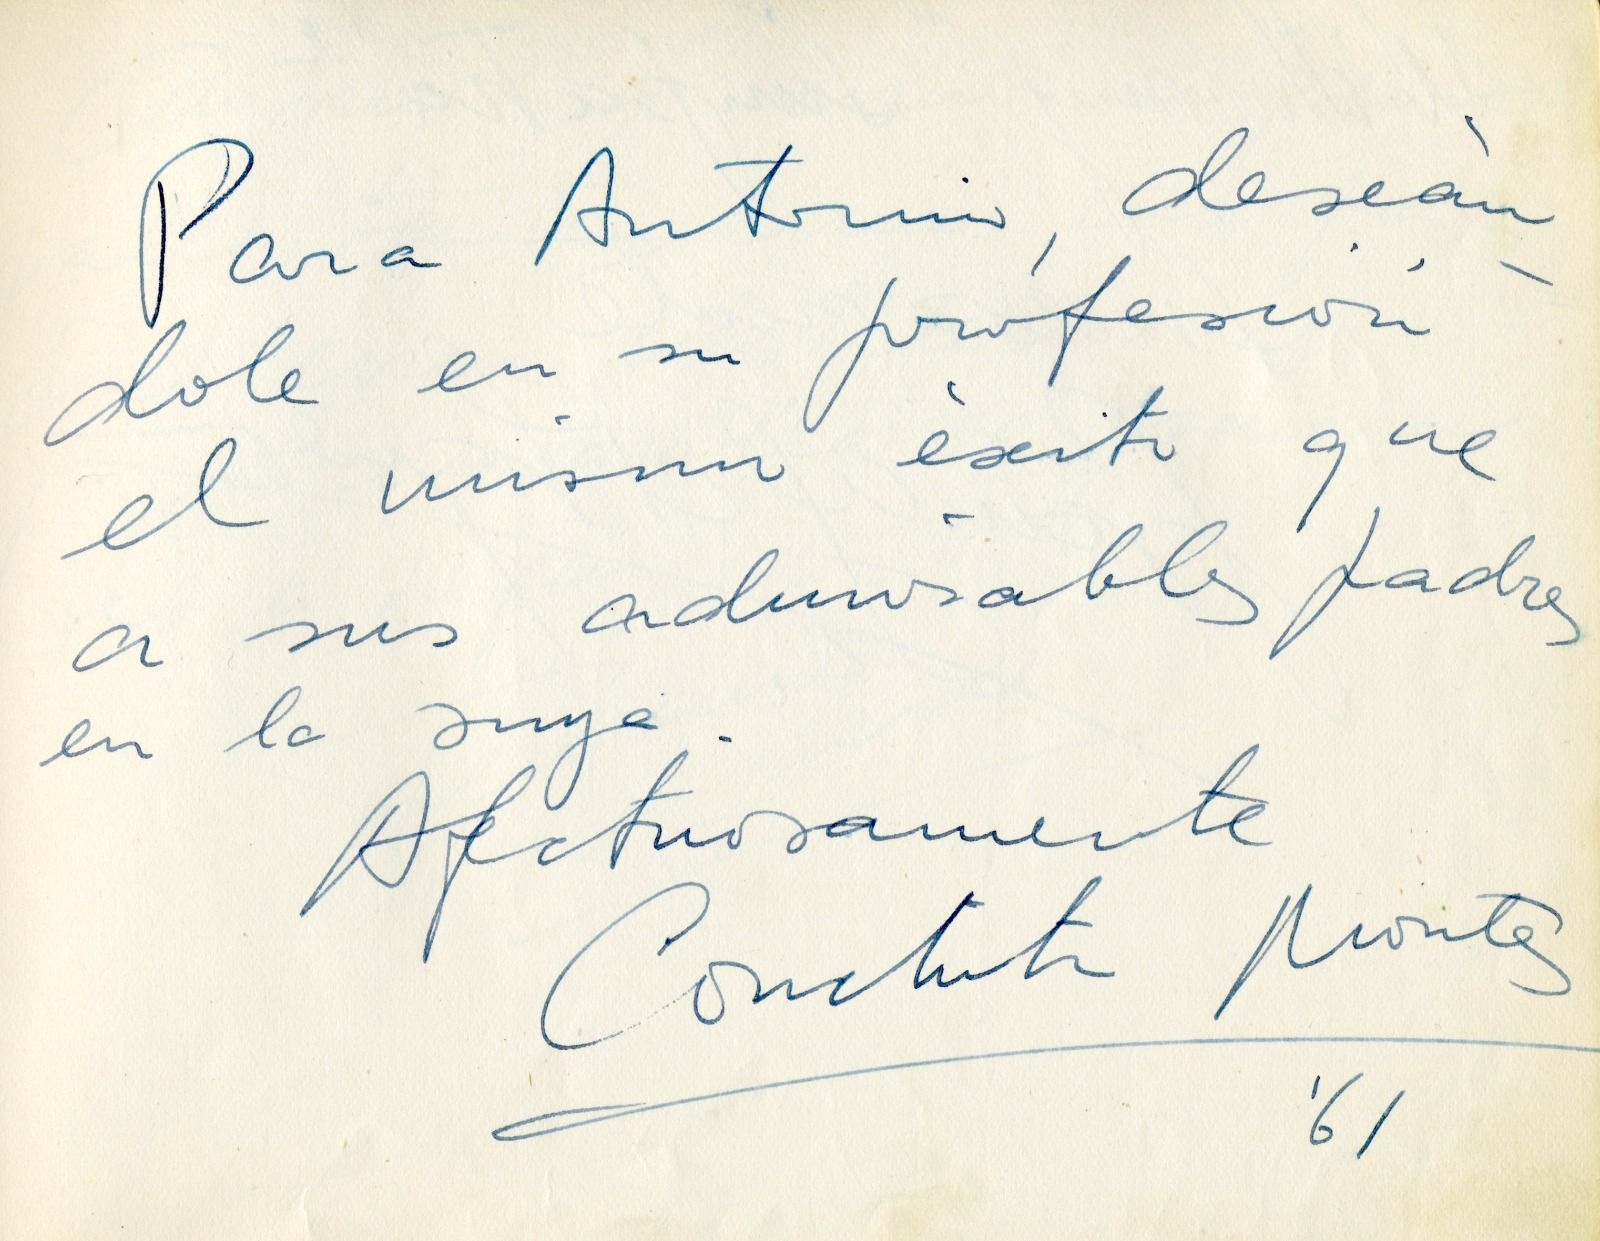 Para Antonio, deseán-
dole en su profesión
el mismo éxito que
a sus admirables padres
en la suya.
Afectuosamente
Conchita Montes
'61